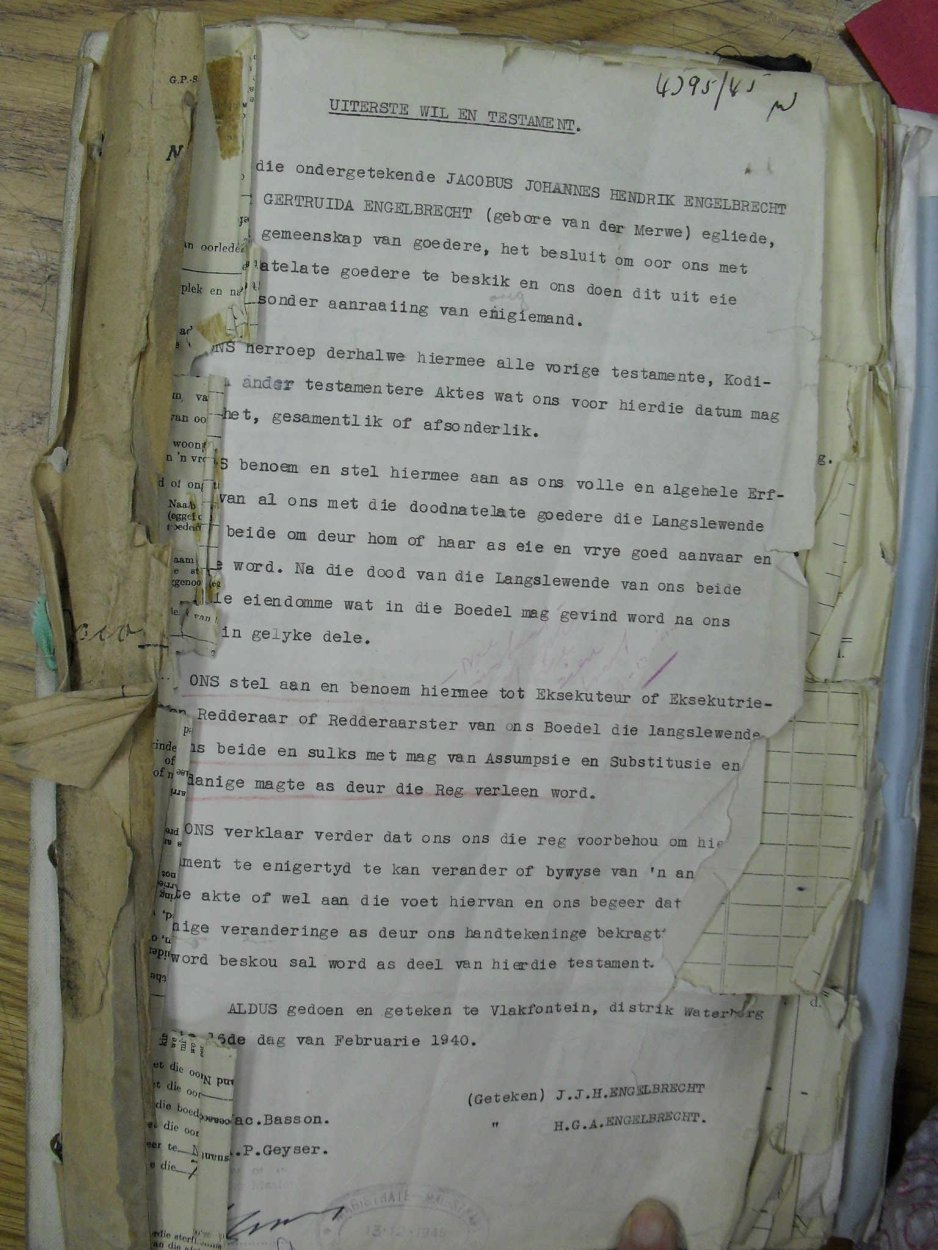 4395/45
G.P.-S
UITERSTE WIL EN TESTAMENT.
die ondergetekende JACOBUS JOHANNES HENDRIK ENGELBRECHT
GERTRUIDA ENGELBRECHT (gebore van der Merwe) egliede,
gemeenskap van goedere, het besluit om oor ons met
atelate goedere te beskik en ons doen dit uit eie
sonder aanraaiing van enigiemand.
ONS herroep derhalwe hiermee alle vorige testamente, Kodi-
ander testamentere Aktes wat ons voor hierdie datum mag
het, gesamentlik of afsonderlik.
S benoem en stel hiermee aan as ons volle en algehele Erf-
van al ons met die doodnatelate goedere die Langslewende
beide om deur hom of haar as eie en vrye goed aanvaar en
e word. Na die dood van die Langslewende van ons beide
le eiendomme wat in die Boedel mag gevind word na ons
in gelyke dele.
ONS stel aan en benoem hiermee tot Eksekuteur of Eksekutrie-
Redderaar of Redderaarster van ons Boedel die langslewende
ns beide en sulks met mag van Assumpsie en Substitusie en
danige magte as deur die Reg verleen word.
ONS verklaar verder dat ons ons die reg voorbehou om hie
ment te enigertyd te kan verander of bywyse van 'n an
te akte of wel aan die voet hiervan en ons begeer dat
nige veranderinge as deur ons handtekeninge bekragt
word beskou sal word as deel van hierdie testament.
ALDUS gedoen en geteken te Vlakfontein, distrik Waterberg
16de dag van Februarie 1940.
(Geteken) J.J.H.ENGELBRECHT
" H.G.A.ENGELBRECHT.
ac.Basson.
.P.Geyser.